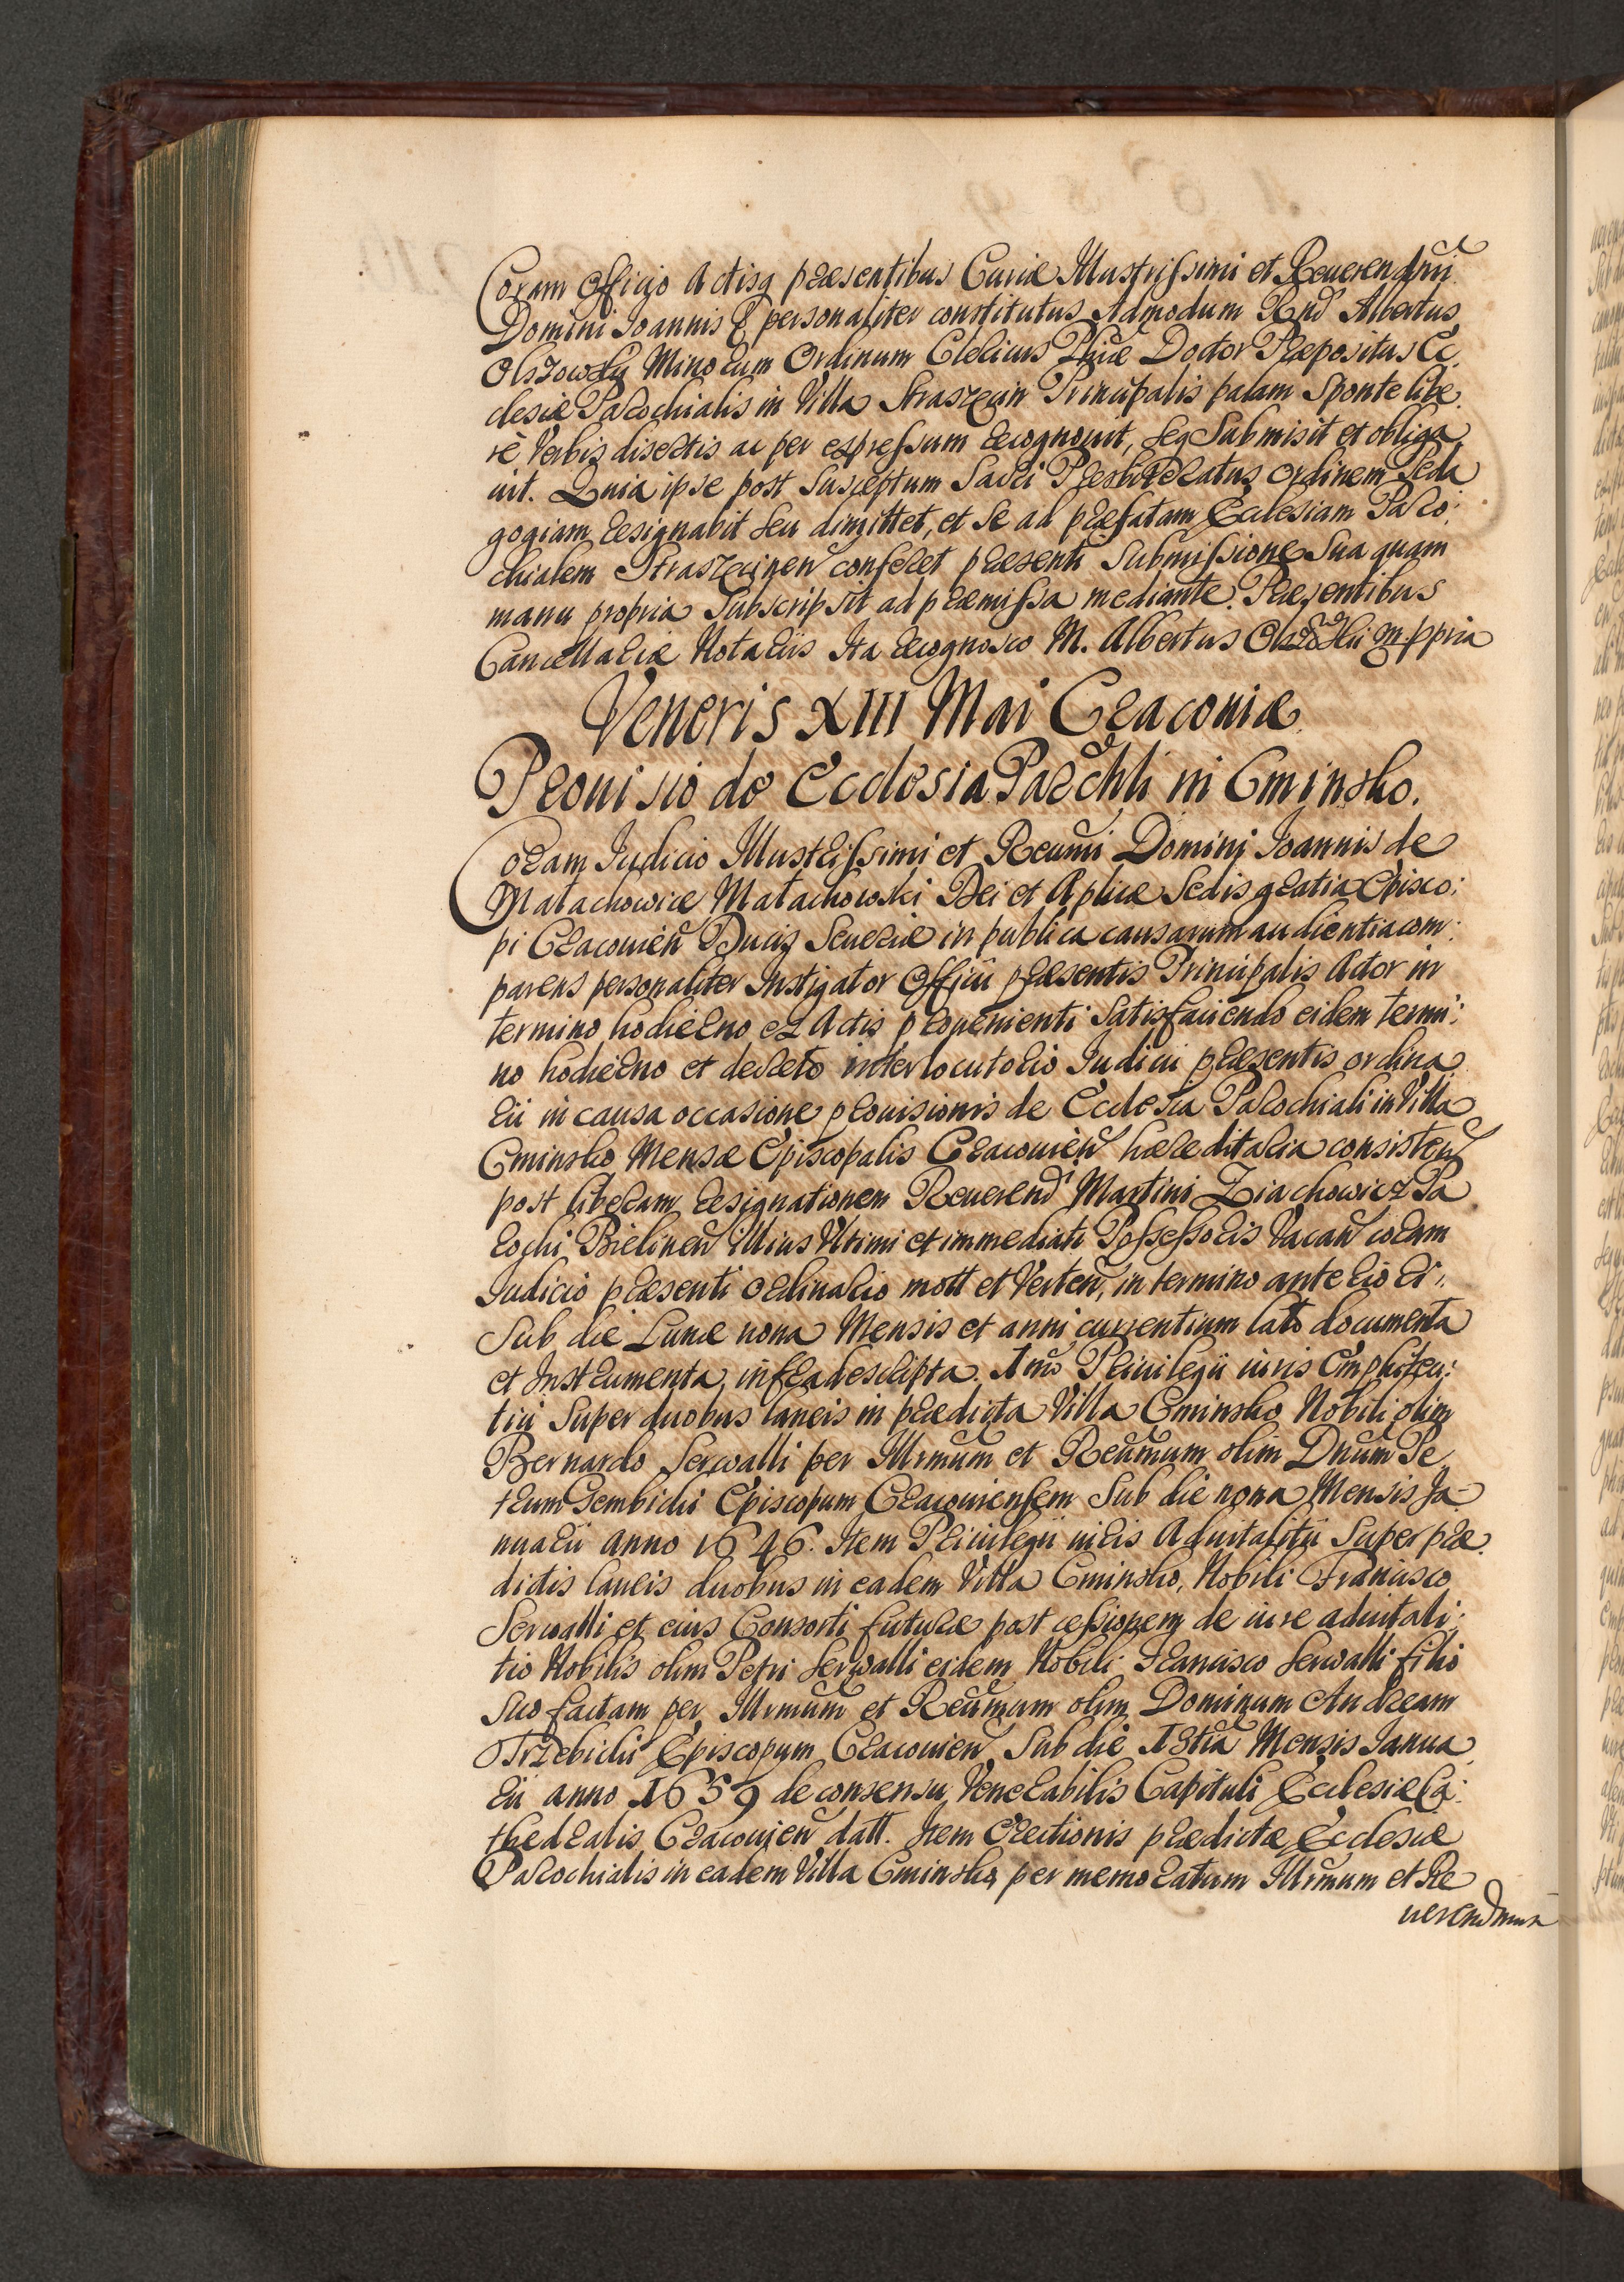 Coram Officio Actisq præsentibus Curiæ Illustrissimi et Reuerendmi
Domini Joannis & personaliter constitutus Admodum Rnd Albertus
Olszowsky Minorum Ordinum Clericus Phiæ Doctor Præpositus Ec
clesiæ Parochialis in Villa Straszęcin Principalis palam Sponte libe
rè Verbis disertis ac per expressum recognouit, seq Submisit et obliga
uit. Quia ipse post Susceptum Sacri Presbiteratus Ordinem Peda
gogiam resignabit seu dimittet, et se ad præfatam Ecclesiam Paro:
chialem Straszecinen conferet præsenti Submissione Sua quam
manu propria Subscripsit ad præmissa mediante. Præsentibus
Cancellariæ Notariis Ita recognosco M. Albertus Olszowski m. ppria
Veneris XIII Mai Cracouiæ
Prouisio de Ecclesia Parchli in Cminsko.
Coram Judicio Illustrissimi et Reumi Domini Joannis de
Małachowice Małachowski Dei et Aplicæ Sedis gratia Episco:
pi Cracouien Ducis Seueriæ in publica causarum audientia com:
parens personaliter Instigator Officii præsentis Principalis Actor in
termino hodierno ex Actis prouenienti Satisfaciendo eidem termi:
no hodierno et decreto interlocutorio Judicii præsentis ordina
rii in causa occasione prouisionis de Ecclesia Parochiali in Villa
Cminsko Mensæ Episcopalis Cracouien hæreditaria consisten
post liberam resignationem Reuerendi Martini Ziachowicz Pa
rochi Bielinen illius Vltimi et immediati Possessoris Vacan coram
Judicio præsenti ordinario mott et Verten, in termino anteriori,
Sub die Lunæ nona Mensis et anni currentium lato documenta
et Instrumenta infradescripta. Imo Priuilegii iuris Emphiteu:
tici Super duobus laneis in prædicta Villa Cminsko Nobili olim
Bernardo Serwalli per Illrmum et Reumum olim Dnum Pe
trum Gembicki Episcopum Cracouiensem Sub die nona Mensis Ja-
nuarii anno 1646. Item Priuilegii iuris Aduitalitii Super præ
dictis laneis duobus in eadem Villa Cminsko, Nobili Francisco
Serwalli et eius Consorti futuræ post cessionem de iure aduitali:
tio Nobilis olim Petri Serwalli eidem Nobili Francisco Serwalli filio
Suo factam per Illrmum et Reumum olim Dominum Andream
Trzebicki Episcopum Cracouien Sub die 13tia Mensis Janua
rii anno 1659 de consensu Venerabilis Capituli Ecclesiæ Ca:
thedralis Cracouien datt. Item Erectionis prædictæ Ecclesiæ
Parochialis in eadem Villa Cminsko per memoratum Illrmum et Re
uerendmum